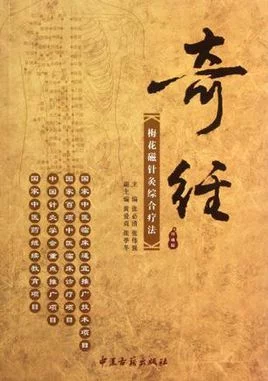 奇经
梅花磁针灸综合疗法
主编 张必清 张伟强
副主编 黄爱贞 张学冬
国家中医临床适宜推广技术项目
国家百项中医临床诊疗项目
中国针灸学会重点推广项目
国家中医药继续教育项目
中医古籍出版社